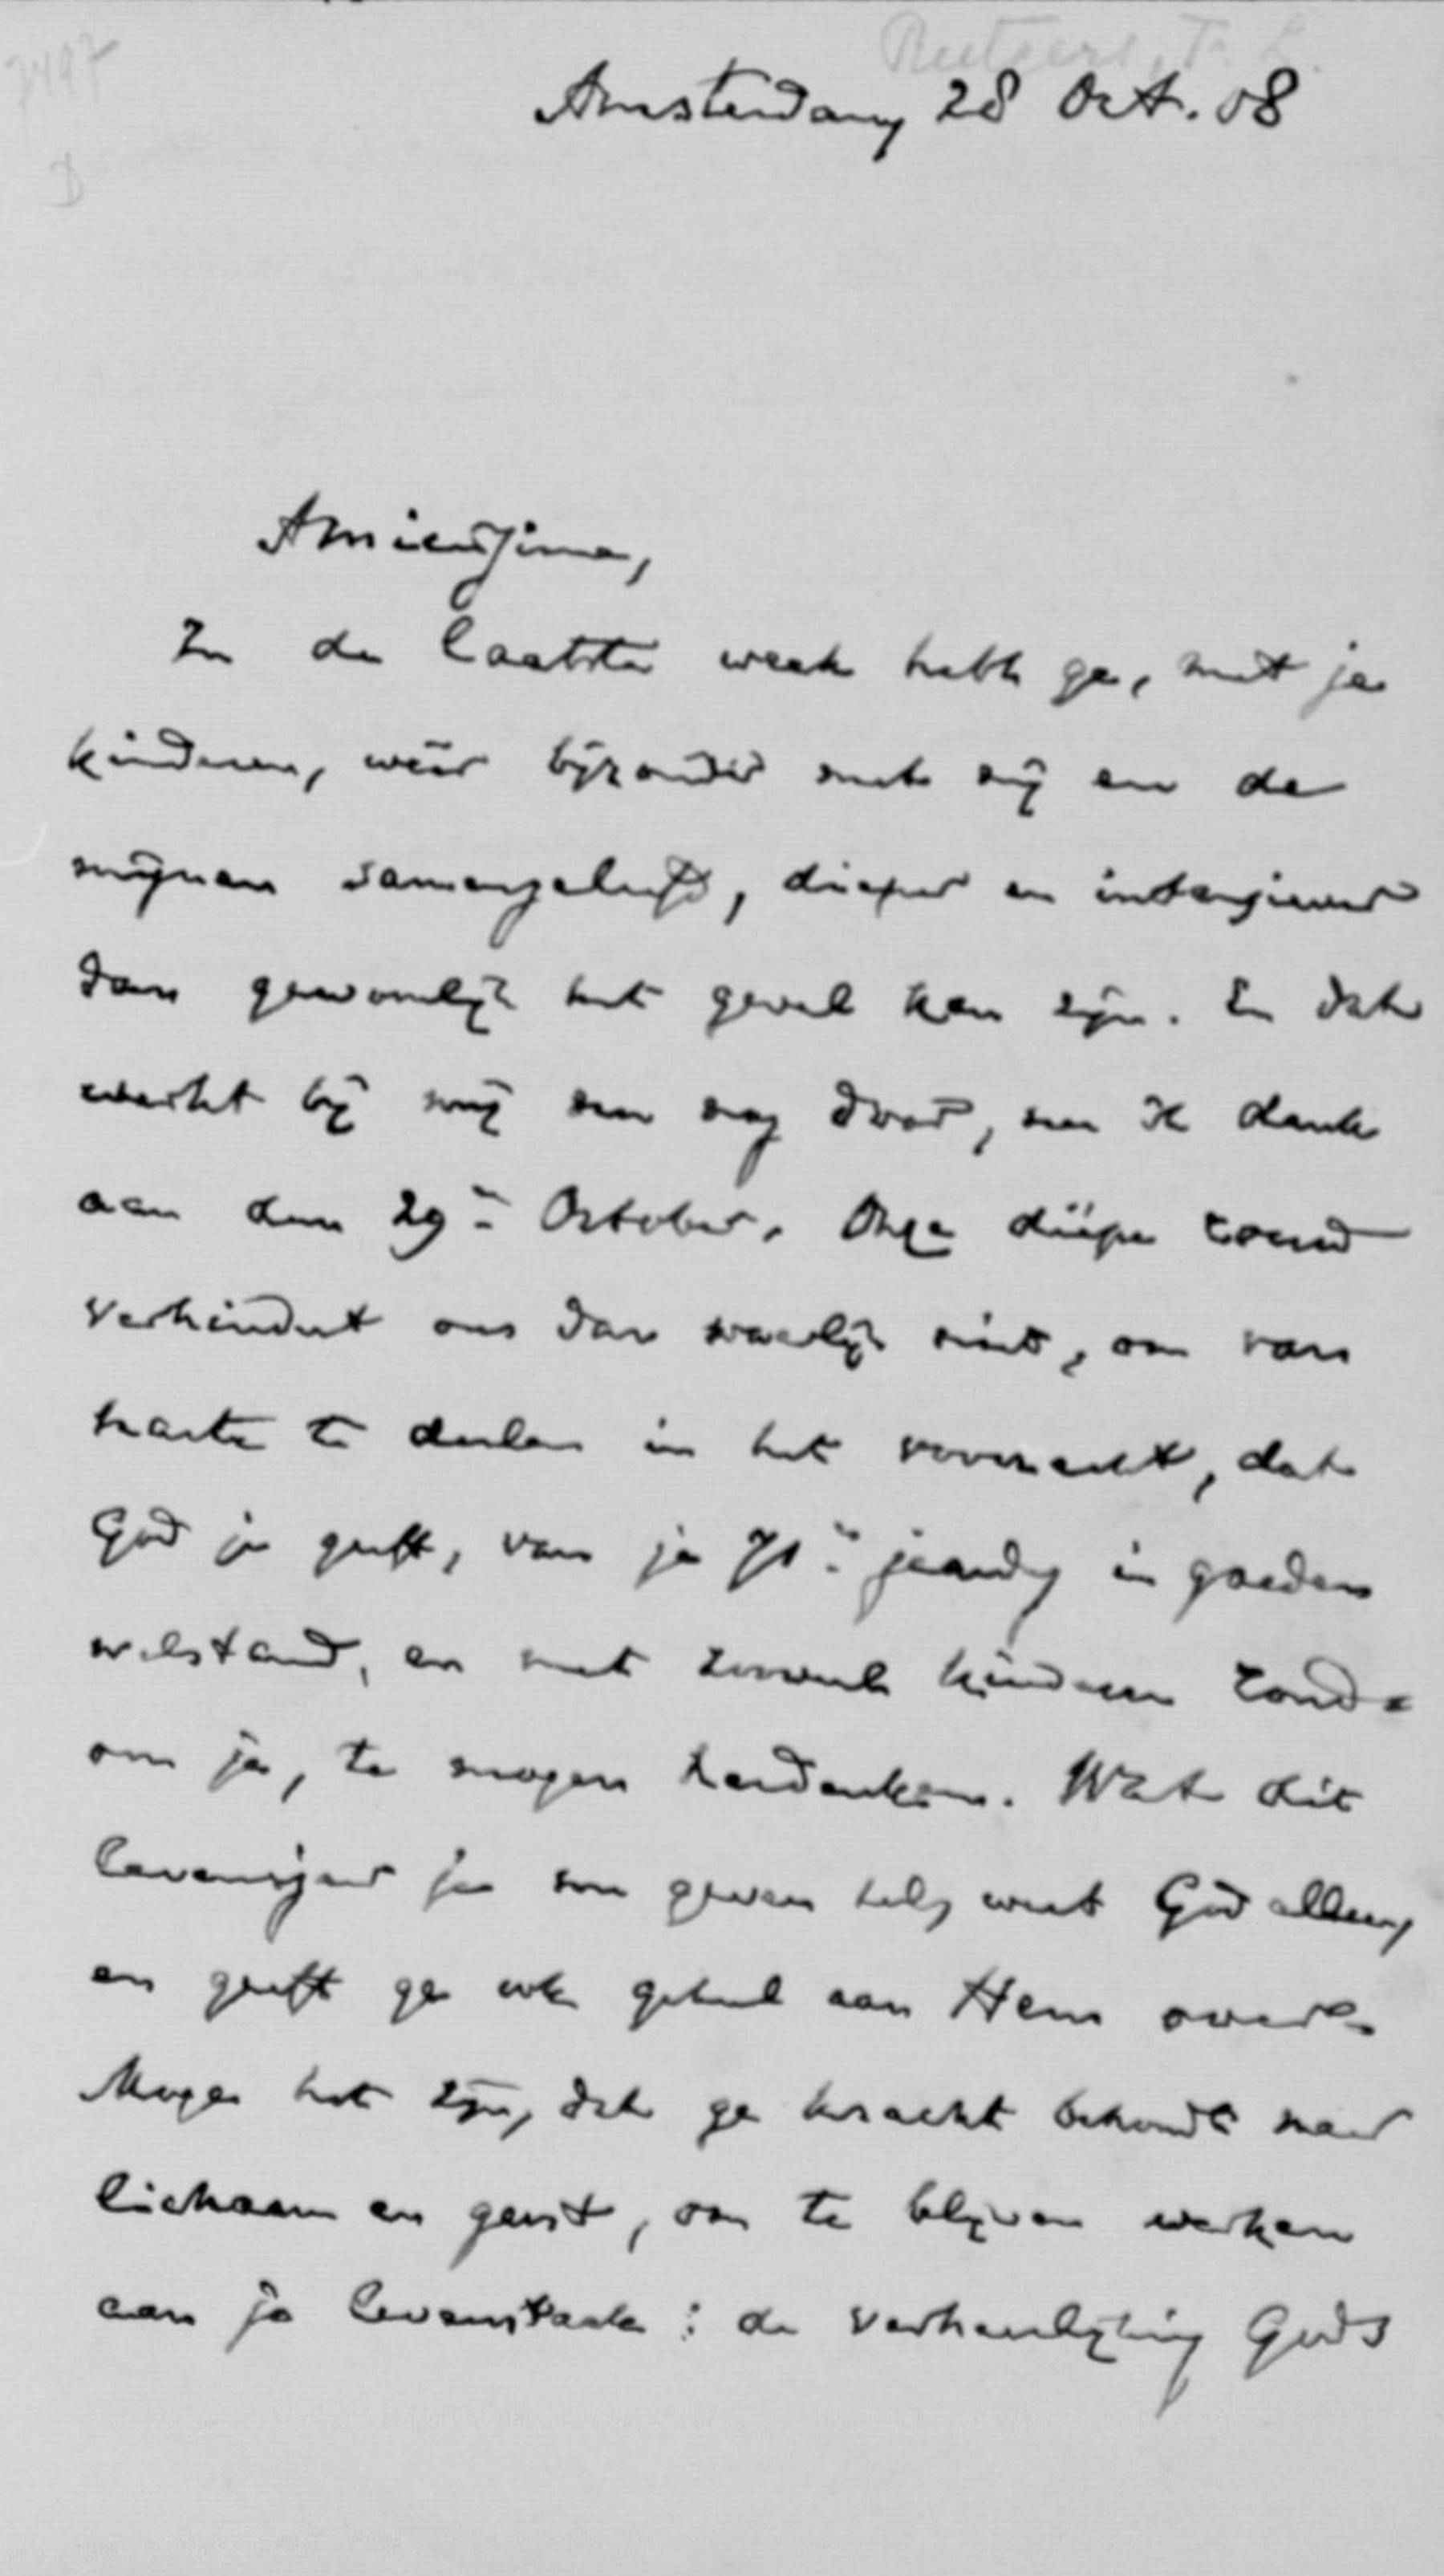 7497
Rutgers, F. L.
D
Amsterdam 28 Oct. 08
Amicissime,
In de laatste week hebt ge, met je
kinderen, weer bijzonder met mij en de
mijnen samengeleefd, dieper en intensiever
dan gewoonlijk het geval kan zijn. En dat
werkt bij mij nu nog door, nu ik denk
aan den 29en October. Onze diepe rouw
verhindert ons dan waarlijk niet, om van
harte te deelen in het voorrecht, dat
God je geeft, van je 71en jaardag in goeden
welstand, en met zooveel kinderen rond-
om je, te mogen herdenken. Wat dit
levensjaar je zou geven weet God alleen,
en geeft ge ook geheel aan Hem over.
Moge het zijn, dat ge kracht behoudt naar
lichaam en geest, om te blijven werken
aan je levenstaak: de verheerlijking Gods